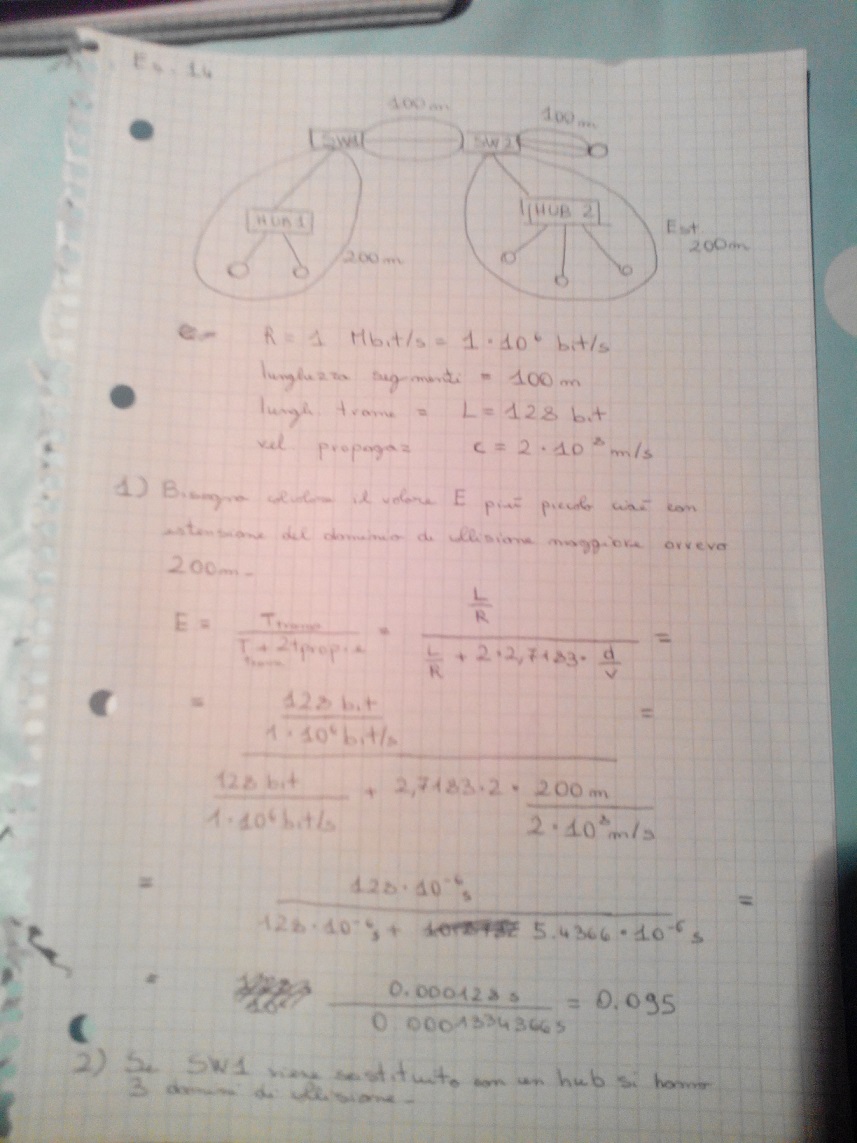 Es. 14
100m
100m
SW1
SW2
HUB 1
HUB 2
200m
Est.
200m
R = 1 Mbit/s = 1 · 10⁶ bit/s
lunghezza segmenti = 100 m
lungh. trame = L = 128 bit
vel propagaz c = 2 · 10⁸ m/s
1) Bisogna calcolare il valore E più piccolo cioè con
estensione del dominio di collisione maggiore ovvero
200m.
E = Ttrama / (Ttrama + 2tprop·e) = (L/R) / (L/R + 2·2,7183· d/v) =
= (128 bit / 1·10⁶ bit/s) =
128 bit / 1·10⁶ bit/s + 2,7183·2 · 200 m / 2·10⁸ m/s
= 128·10⁻⁶ s / (128·10⁻⁶ s + 5.4366·10⁻⁶ s) =
= 0.000128 s / 0.0001334366 s = 0.095
2) Se SW1 viene sostituito con un hub si hanno
3 domini di collisione.